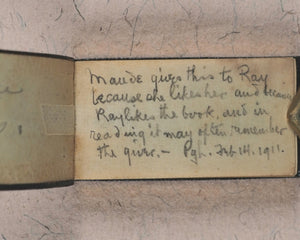 Maude gives this to Ray
because she likes her and because
Ray likes the book, and in
reading it may often remember
the giver. — Pgh. Feb 14. 1911.